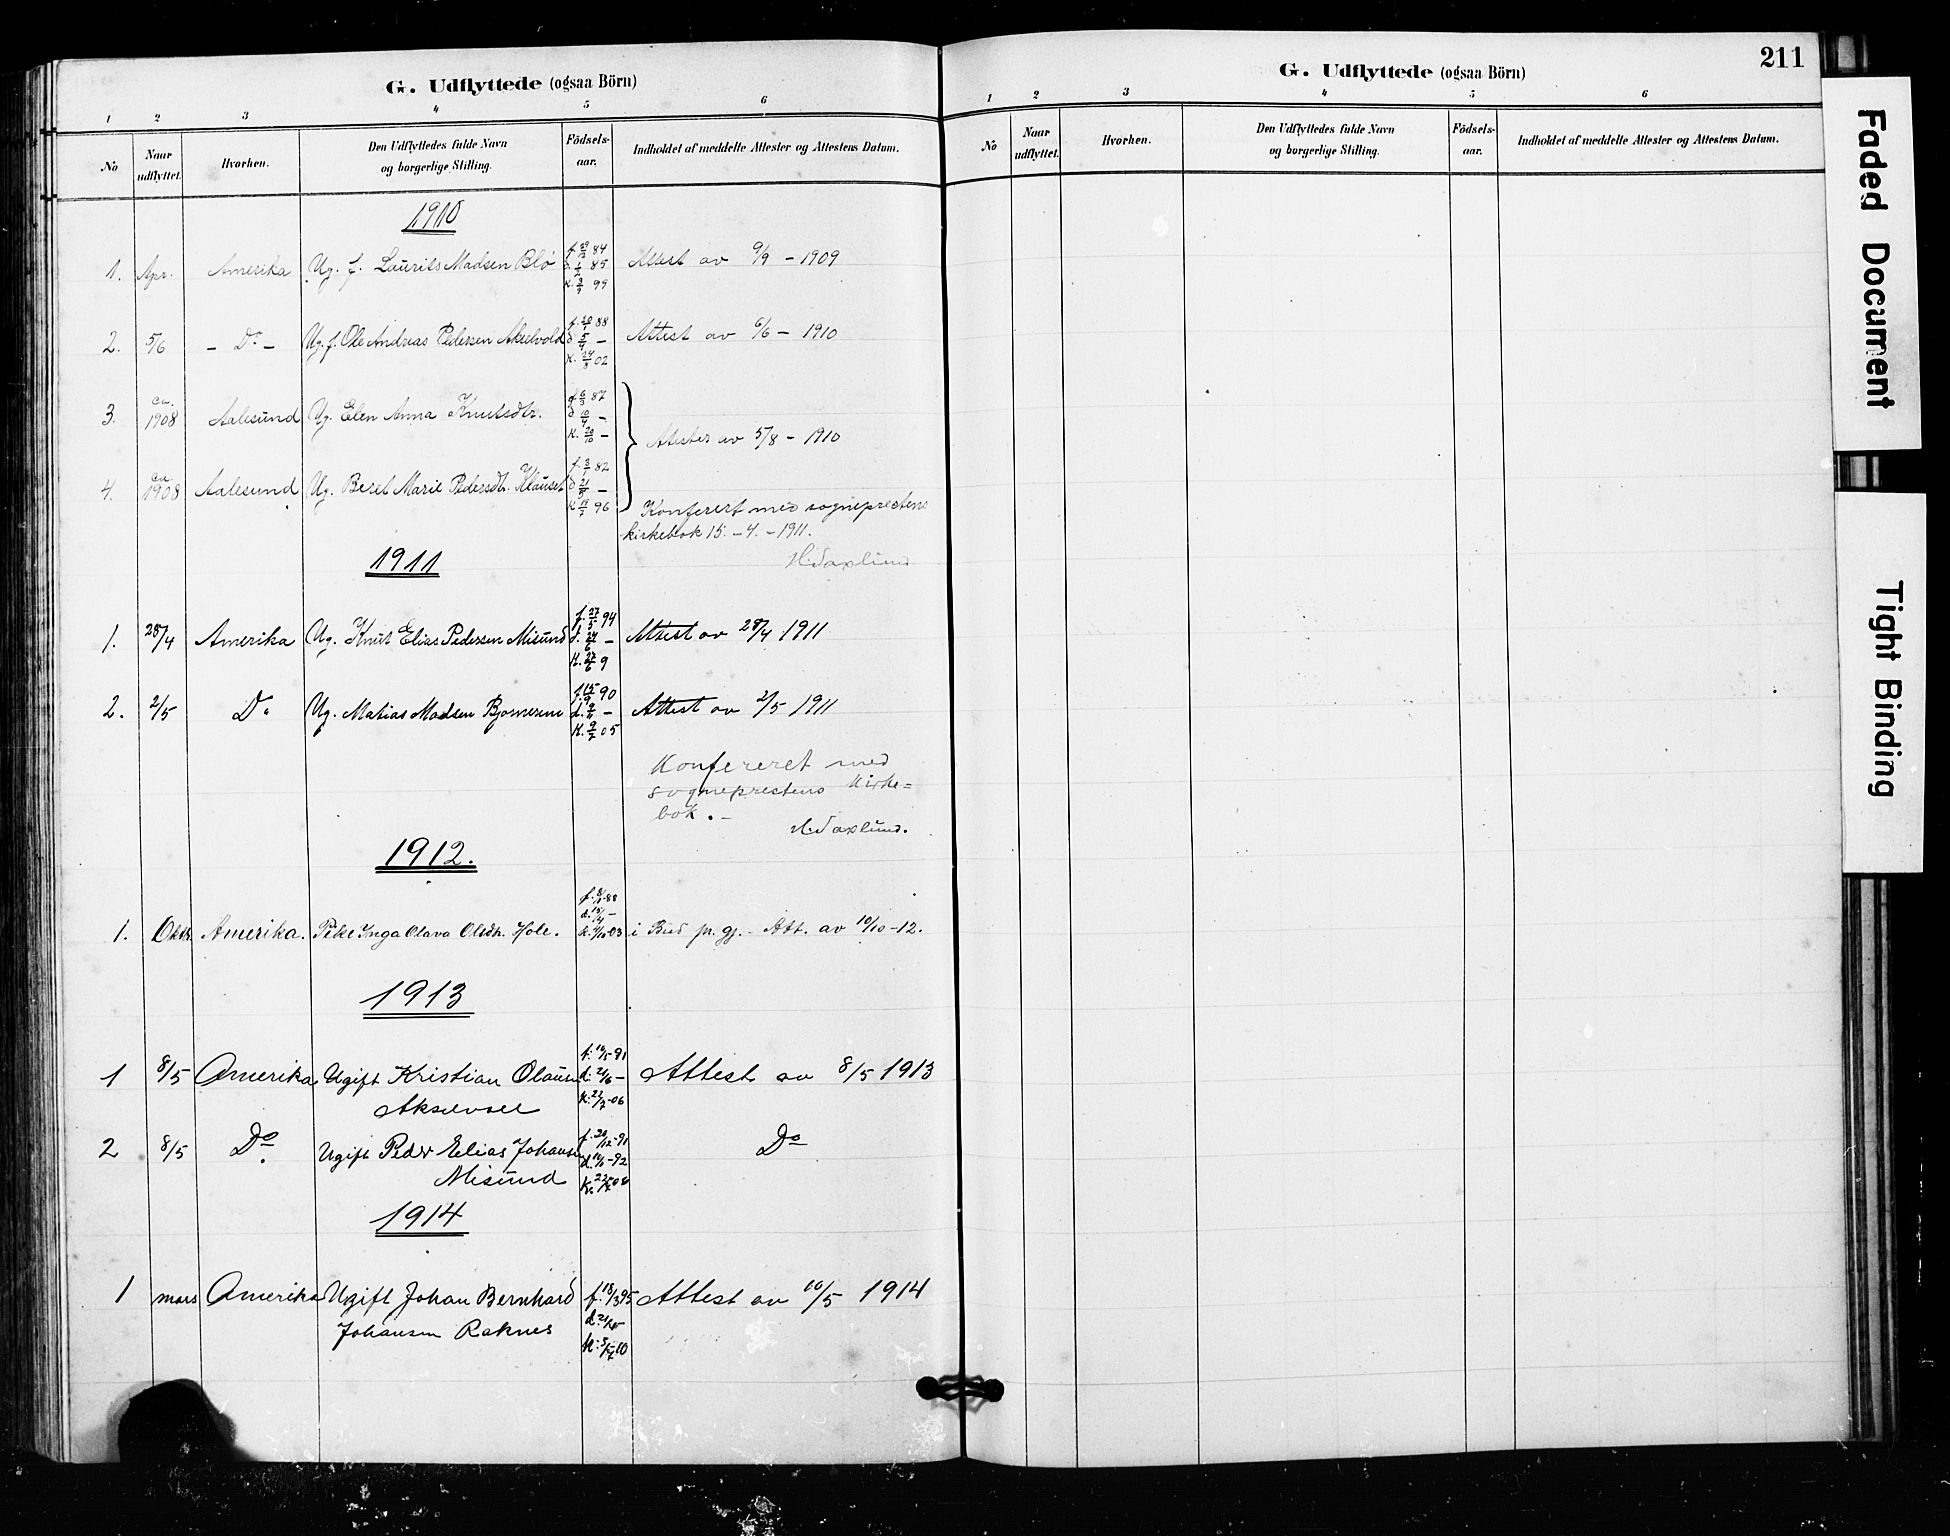 G. Udflyttede (ogsaa Börn)
1 2 3 4 5 6
No
Naar udflyttet.
Hvorhen.
Den Udflyttedes fulde Navn og borgerlige Stilling.
Födsels-aar.
Indholdet af meddelte Attester og Attestens Datum.
1910
1. Apr. Amerika Ug. f. Laurits Madsen Blø f. 29/12 84 Attest av 9/9 - 1909
d. 1/2 85
K. 3/9 99
2. 5/6 - Do - Ug. f. Ole Andreas Pedersen Akselvold f. 20/1 88 Attest av 6/6 - 1910
d 5/4 -
K. 24/8 02
3. ca. 1908 Aalesund Ug. Elen Anna Knutsdtr. f. 6/3 87
d 10/4 -
K. 20/10 -
Attester av 5/8 - 1910
4. ca. 1908 Aalesund Ug. Beret Marie Pedersdtr. Klauset f. 3/1 82
d 21/5 -
K 96
Konferert med sogneprestens
kirkebok 15. - 4. - 1911.
H Saxlund
1911
1. 28/4 Amerika Ug. Knut Elias Pedersen Misund f. 27/5 94 Attest av 28/4 1911
d. 24/6 -
K. 27/6 9
2. 2/5 Do Ug. Matias Madsen Bjørnerem f. 15/9 90 Attest av 2/5 1911
d. 9/11 -
K. 9/7 05
Konfereret med
sogneprestens Kirke=
bok. -
H. Saxlund.
1912.
1. Oktr. Amerika. Pike Inga Olava Olsdtr. Hole. i Bud pr. gj. - Att. av 10/10 - 12.
1913
1 8/5 Amerika Ugift Kristian Olausen f: 10/5 - 91 Attest av 8/5 1913
d: 21/6 -
Akselvoll K: 22/7 - 06
2 8/5 Do Ugift Peder Elias Johansen f. 20/12 - 91 Do
Misund
1914
1 mars Amerika Ugift Johan Bernhard f. 18/3 95 Attest av 10/5 1914
Johansen Raknes
G. Udflyttede (ogsaa Börn)
211
1 2 3 4 5 6
No
Naar udflyttet.
Hvorhen.
Den Udflyttedes fulde Navn og borgerlige Stilling.
Födsels-aar.
Indholdet af meddelte Attester og Attestens Datum.
Faded Document
Tight Binding